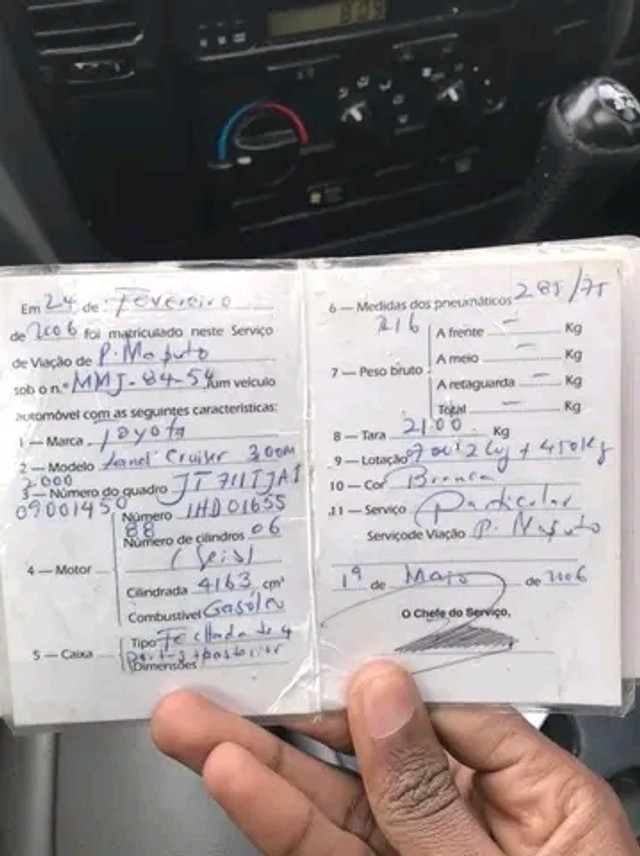 Em 24 de Fevereiro
de 2006 foi matriculado neste Serviço
de Viação de P. Maputo
sob o n.º MMJ-84-54, um veículo
automóvel com as seguintes características:
1 — Marca Toyota
2 — Modelo Land Cruiser
3 — Número do quadro JT711TJA1
09001450
4 — Motor
Número 1HD01655
88
Número de cilindros 06
(Seis)
Cilindrada 4163 cm³
Combustível Gasóleo
5 — Caixa
Tipo Fechada de 4
Dimensões
6 — Medidas dos pneumáticos 285/75
R16
7 — Peso bruto
A frente — Kg
A meio — Kg
A retaguarda — Kg
Total — Kg
8 — Tara 2100 Kg
9 — Lotação + 450Kg
10 — Cor Branca
11 — Serviço Particular
Serviço de Viação P. Maputo
19 de Maio de 2006
O Chefe do Serviço,